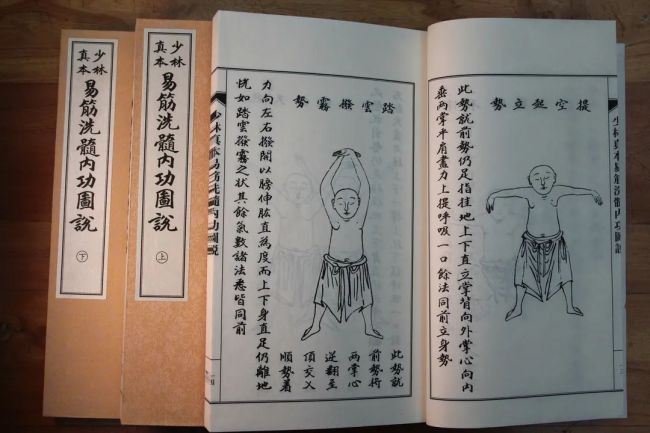 少林
真本
易筋洗髓內功圖說
上
少林
真本
易筋洗髓內功圖說
下
提空起立勢
此勢就前勢仍足指拄地上下直立掌背向外掌心向內
垂兩掌平肩盡力上提呼吸一口餘法同前立身勢
踏雲撥霧勢
此勢就
前勢將
兩掌心
逆翻至
頂交乂
順勢着
力向左右撥開以膀伸肱直為度而上下身直足仍離地
恍如踏雲撥霧之狀其餘氣數諸法悉皆同前
少林真本易筋洗髓內功圖說